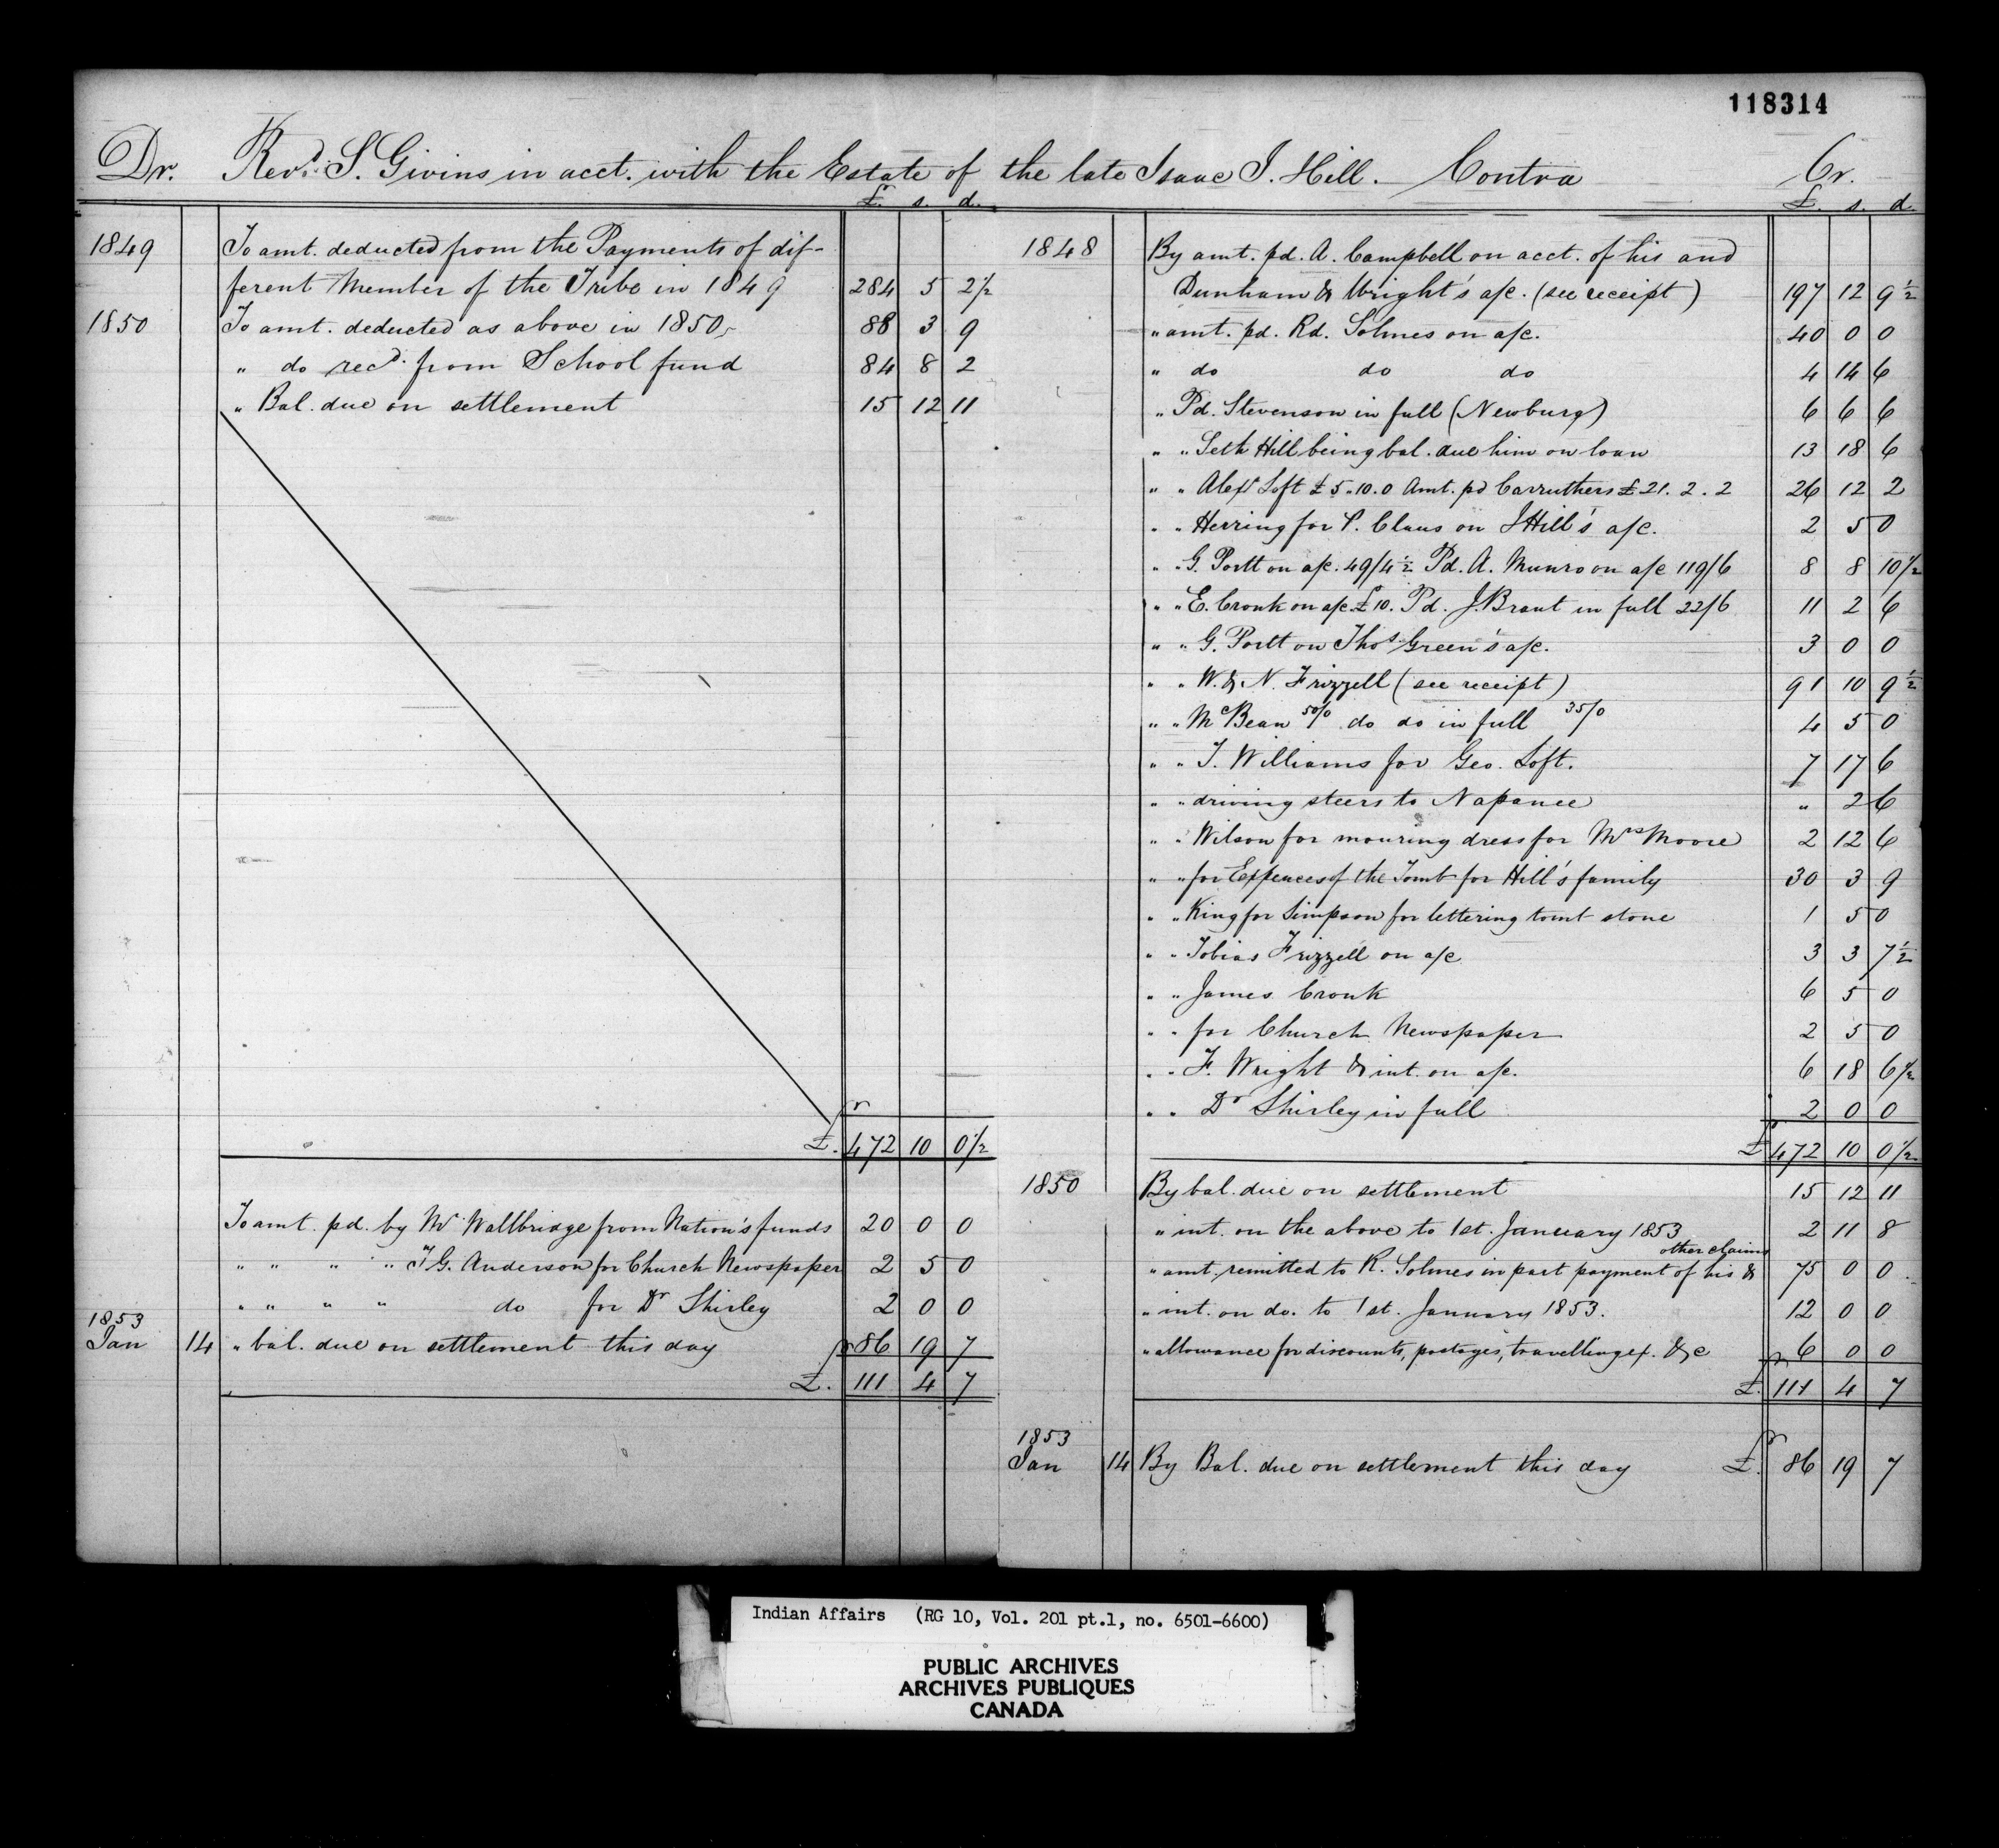 118314
Dr. Revd. S. Givins in acct. with the Estate of the late Isaac I. Hill. Contra Cr.
£. s. d.
1849 To amt. deducted from the Payments of dif-
ferent Member of the Tribe in 1849 284 5 2 1/2
1850 To amt. deducted as above in 1850, 88 3 9
" do recd. from School fund 84 8 2
" Bal. due on settlement 15 12 11
£. 472 10 0 1/2
To amt. pd. by Mr Wallbridge from Nation's funds 20 0 0
" " " " T G. Anderson for Church Newspaper 2 5 0
" " " " do for Dr Shirley 2 0 0
1853
Jan 14 " bal. due on settlement this day 86 19 7
£. 111 4 7
£. s. d.
1848 By amt. pd. A. Campbell on acct. of his and
Dunham & Wright's a/c. (see receipt) 197 12 9 1/2
" amt. pd. Rd. Solmes on a/c. 40 0 0
" do do do 4 14 6
" Pd. Stevenson in full (Newburg) 6 6 6
" " Seth Hill being bal. due him on loan 13 18 6
" " Alexr Loft £5.10.0 Amt. pd Carruthers £21.2.2 26 12 2
" " Herring for P. Claus on J Hill's a/c. 2 5 0
" " G. Portt on a/c. 49/4 1/2 Pd. A. Munro on a/c 119/6 8 8 10 1/2
" " E. Cronk on a/c. £10. Pd. J. Brant in full 22/6 11 2 6
" " G. Portt on Thos Green's a/c. 3 0 0
" " W. & N. Frizzell (see receipt) 91 10 9 1/2
" " McBean 50/0 do do in full 35/0 4 5 0
" " T. Williams for Geo. Loft. 7 17 6
" " driving steers to Napanee " 2 6
" " Wilson for mouring dress for Mrs Moore 2 12 6
" " for Expences of the Tomb for Hill's family 30 3 9
" " King for Simpson for lettering tomt stone 1 5 0
" " Tobias Frizzell on a/c 3 3 7 1/2
" " James Cronk 6 5 0
" " for Church Newspaper 2 5 0
" " F. Wright & int. on a/c. 6 18 6 1/2
" " Dr Shirley in full 2 0 0
£ 472 10 0 1/2
1850 By bal. due on settlement 15 12 11
" int. on the above to 1st. January 1853 2 11 8
other claims
" amt. remitted to R. Solmes in part payment of his & 75 0 0
" int. on do. to 1st. January 1853. 12 0 0
" allowance for discounts, postages, travelling ex. &c 6 0 0
£. 111 4 7
1853
Jan 14 By Bal. due on settlement this day £. 86 19 7
Indian Affairs (RG 10, Vol. 201 pt.1, no. 6501-6600)
PUBLIC ARCHIVES
ARCHIVES PUBLIQUES
CANADA